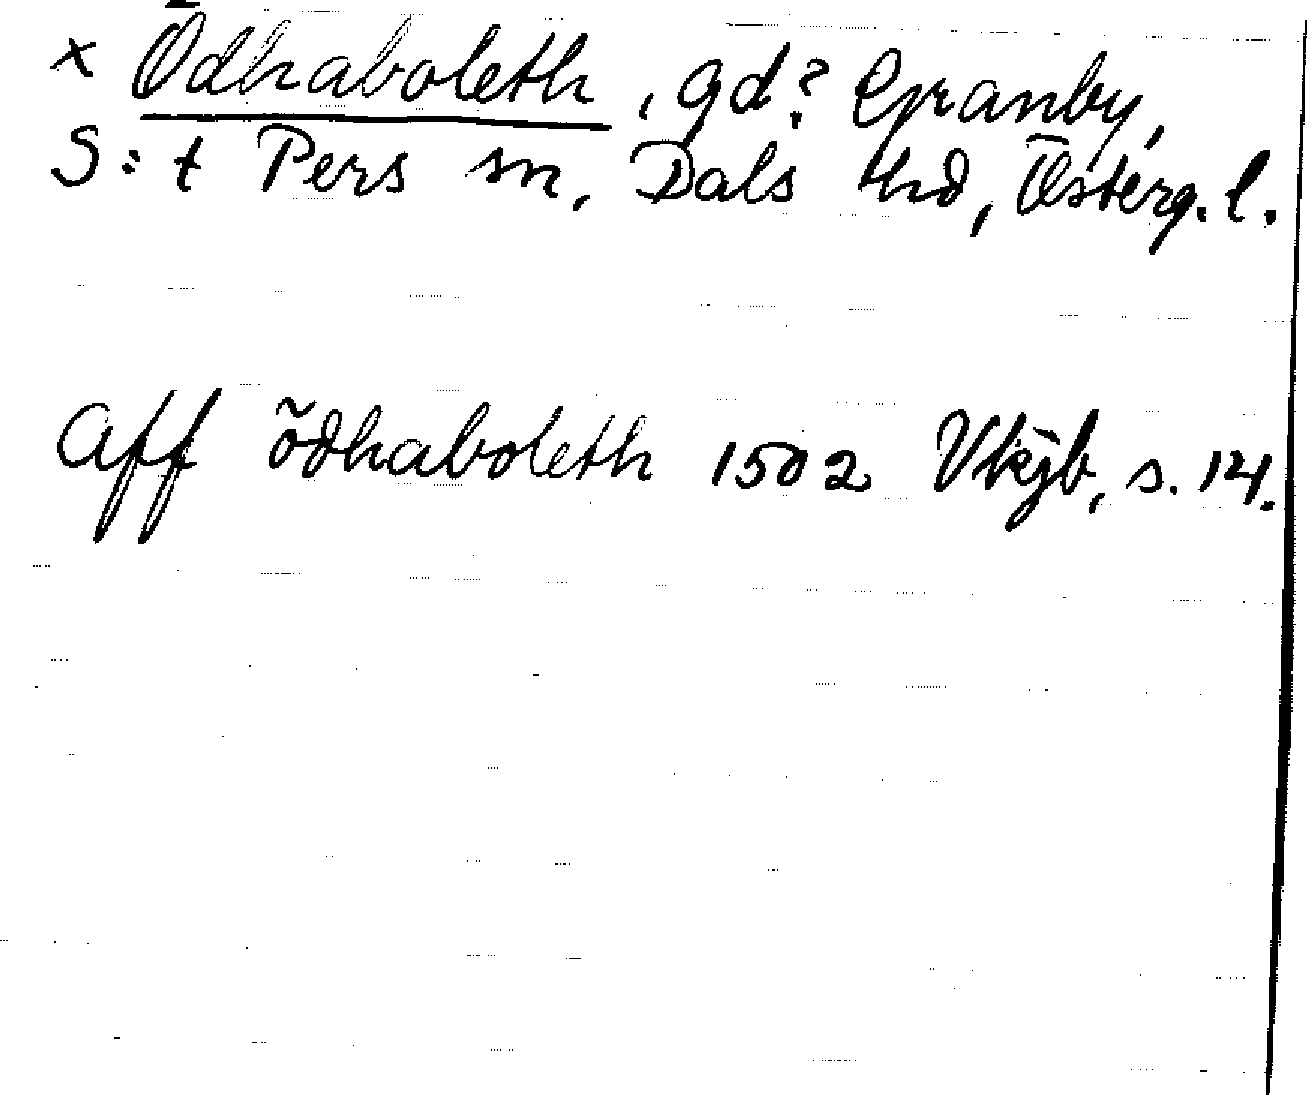 x Ödhaboleth, gd? Granby,
S:t Pers sn, Dals hd, Österg. l.
Aff ödhaboleth 1502 Vkjb, s. 14.